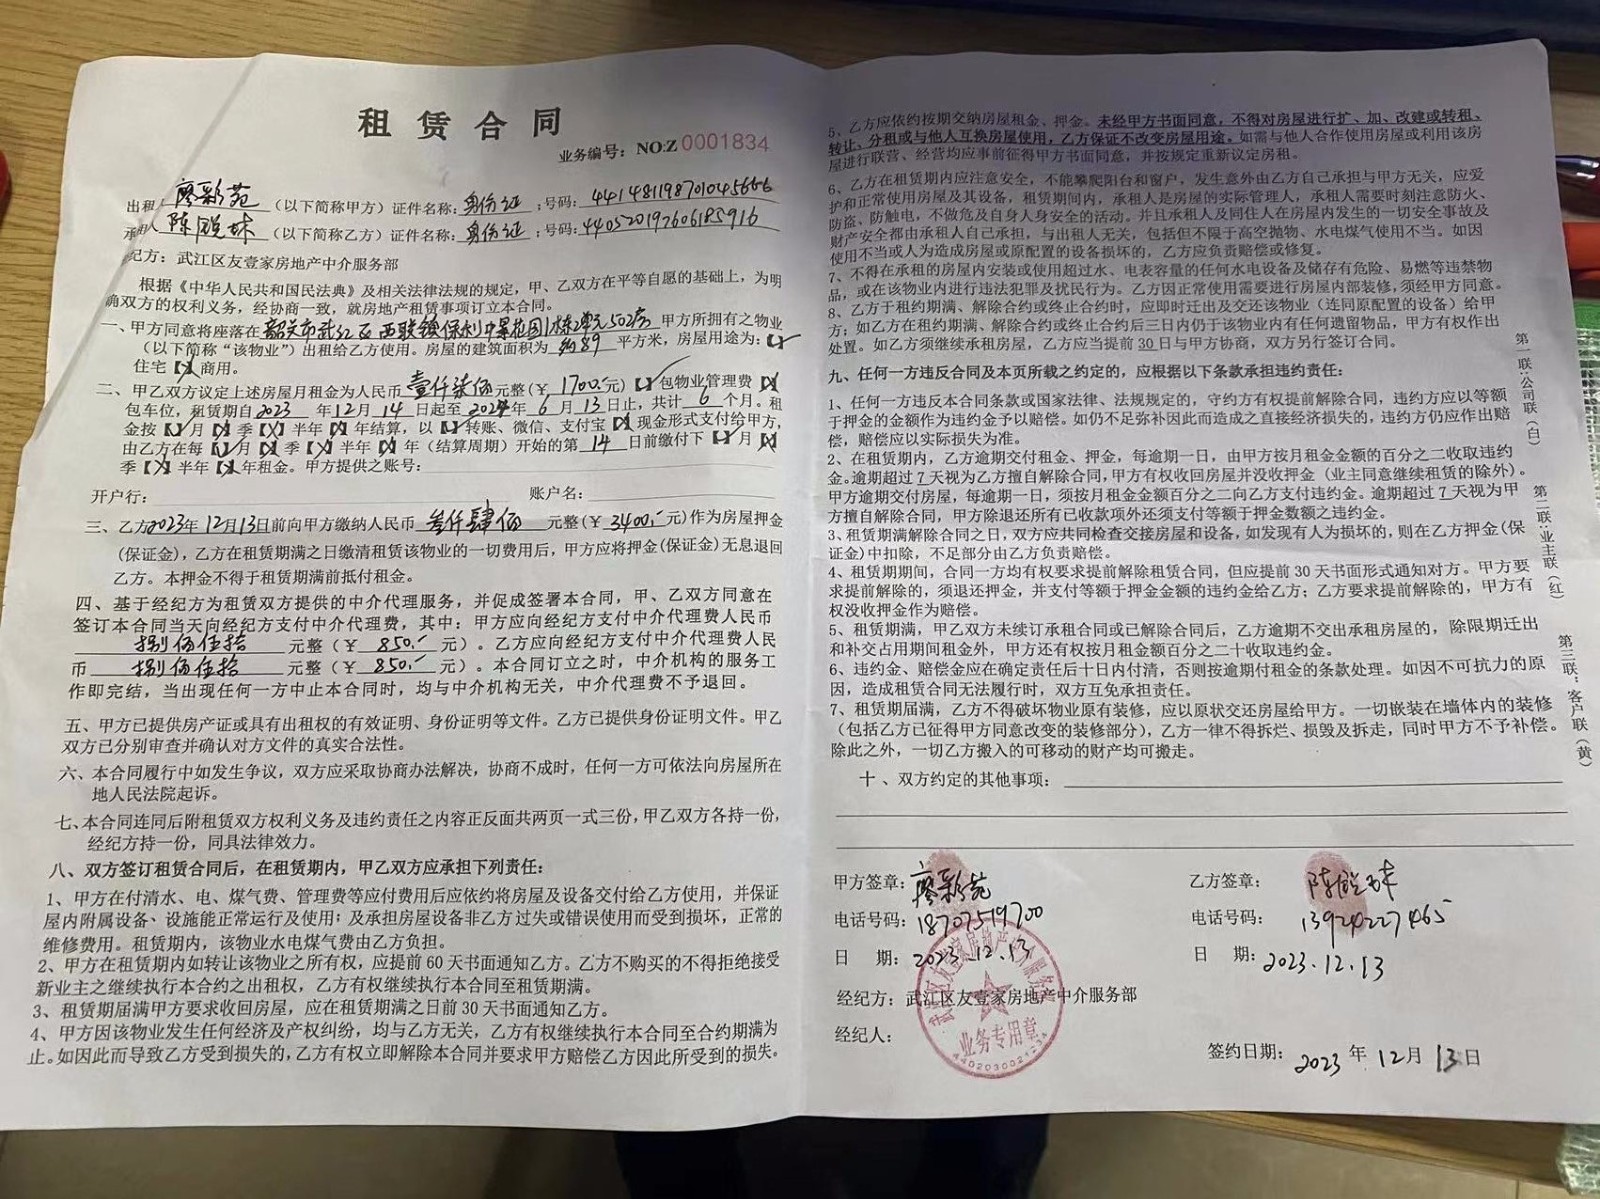 租赁合同
业务编号：NO:Z 0001834
出租 廖彩苑 （以下简称甲方）证件名称：身份证；号码：441481198701045666
承租人 陈 （以下简称乙方）证件名称：身份证；号码：440520197606185916
纪方：武江区友壹家房地产中介服务部
根据《中华人民共和国民法典》及相关法律法规的规定，甲、乙双方在平等自愿的基础上，为明
确双方的权利义务，经协商一致，就房地产租赁事项订立本合同。
一、甲方同意将座落在 韶关市武江区西联镇保利中景花园1栋2单元502房 甲方所拥有之物业
（以下简称“该物业”）出租给乙方使用。房屋的建筑面积为 约89 平方米，房屋用途为：【✓】
住宅【✗】商用。
二、甲乙双方议定上述房屋月租金为人民币 壹仟柒佰 元整（￥ 1700.- 元）【✓】包物业管理费【✗】
包车位，租赁期自2023 年12月 14 日起至 2024年 6 月 13日止，共计 6 个月。租
金按【✓】月【✗】季【✗】半年【✗】年结算，以【✓】转账、微信、支付宝【✗】现金形式支付给甲方，
由乙方在每【✓】月【✗】季【✗】半年【✗】年（结算周期）开始的第 14 日前缴付下【✓】月【✗】
季【✗】半年【✗】年租金。甲方提供之账号：
开户行： 账户名：
三、乙方2023年12月13日前向甲方缴纳人民币 叁仟肆佰 元整（￥ 3400.- 元）作为房屋押金
（保证金），乙方在租赁期满之日缴清租赁该物业的一切费用后，甲方应将押金（保证金）无息退回
乙方。本押金不得于租赁期满前抵付租金。
四、基于经纪方为租赁双方提供的中介代理服务，并促成签署本合同，甲、乙双方同意在
签订本合同当天向经纪方支付中介代理费，其中：甲方应向经纪方支付中介代理费人民币
捌佰伍拾 元整（￥ 850.- 元）。乙方应向经纪方支付中介代理费人民
币 捌佰伍拾 元整（￥ 850.- 元）。本合同订立之时，中介机构的服务工
作即完结，当出现任何一方中止本合同时，均与中介机构无关，中介代理费不予退回。
五、甲方已提供房产证或具有出租权的有效证明、身份证明等文件。乙方已提供身份证明文件。甲乙
双方已分别审查并确认对方文件的真实合法性。
六、本合同履行中如发生争议，双方应采取协商办法解决，协商不成时，任何一方可依法向房屋所在
地人民法院起诉。
七、本合同连同后附租赁双方权利义务及违约责任之内容正反面共两页一式三份，甲乙双方各持一份，
经纪方持一份，同具法律效力。
八、双方签订租赁合同后，在租赁期内，甲乙双方应承担下列责任：
1、甲方在付清水、电、煤气费、管理费等应付费用后应依约将房屋及设备交付给乙方使用，并保证
屋内附属设备、设施能正常运行及使用；及承担房屋设备非乙方过失或错误使用而受到损坏，正常的
维修费用。租赁期内，该物业水电煤气费由乙方负担。
2、甲方在租赁期内如转让该物业之所有权，应提前60天书面通知乙方。乙方不购买的不得拒绝接受
新业主之继续执行本合约之出租权，乙方有权继续执行本合同至租赁期满。
3、租赁期届满甲方要求收回房屋，应在租赁期满之日前30天书面通知乙方。
4、甲方因该物业发生任何经济及产权纠纷，均与乙方无关，乙方有权继续执行本合同至合约期满为
止。如因此而导致乙方受到损失的，乙方有权立即解除本合同并要求甲方赔偿乙方因此所受到的损失。
5、乙方应依约按期交纳房屋租金、押金。未经甲方书面同意，不得对房屋进行扩、加、改建或转租、
转让、分租或与他人互换房屋使用，乙方保证不改变房屋用途。如需与他人合作使用房屋或利用该房
屋进行联营、经营均应事前征得甲方书面同意，并按规定重新议定房租。
6、乙方在租赁期内应注意安全，不能攀爬阳台和窗户，发生意外由乙方自己承担与甲方无关，应爱
护和正常使用房屋及其设备，租赁期间内，承租人是房屋的实际管理人，承租人需要时刻注意防火、
防盗、防触电，不做危及自身人身安全的活动。并且承租人及同住人在房屋内发生的一切安全事故及
财产安全都由承租人自己承担，与出租人无关，包括但不限于高空抛物、水电煤气使用不当。如因
使用不当或人为造成房屋或原配置的设备损坏的，乙方应负责赔偿或修复。
7、不得在承租的房屋内安装或使用超过水、电表容量的任何水电设备及储存有危险、易燃等违禁物
品，或在该物业内进行违法犯罪及扰民行为。乙方因正常使用需要进行房屋内部装修，须经甲方同意。
8、乙方于租约期满、解除合约或终止合约时，应即时迁出及交还该物业（连同原配置的设备）给甲
方；如乙方在租约期满、解除合约或终止合约后三日内仍于该物业内有任何遗留物品，甲方有权作出
处置。如乙方须继续承租房屋，乙方应当提前30日与甲方协商，双方另行签订合同。
九、任何一方违反合同及本页所载之约定的，应根据以下条款承担违约责任：
1、任何一方违反本合同条款或国家法律、法规规定的，守约方有权提前解除合同，违约方应以等额
于押金的金额作为违约金予以赔偿。如仍不足弥补因此而造成之直接经济损失的，违约方仍应作出赔
偿，赔偿应以实际损失为准。
2、在租赁期内，乙方逾期交付租金、押金，每逾期一日，由甲方按月租金金额的百分之二收取违约
金。逾期超过7天视为乙方擅自解除合同，甲方有权收回房屋并没收押金（业主同意继续租赁的除外）。
甲方逾期交付房屋，每逾期一日，须按月租金金额百分之二向乙方支付违约金。逾期超过7天视为甲
方擅自解除合同，甲方除退还所有已收款项外还须支付等额于押金数额之违约金。
3、租赁期满解除合同之日，双方应共同检查交接房屋和设备，如发现有人为损坏的，则在乙方押金（保
证金）中扣除，不足部分由乙方负责赔偿。
4、租赁期期间，合同一方均有权要求提前解除租赁合同，但应提前30天书面形式通知对方。甲方要
求提前解除的，须退还押金，并支付等额于押金金额的违约金给乙方；乙方要求提前解除的，甲方有
权没收押金作为赔偿。
5、租赁期满，甲乙双方未续订承租合同或已解除合同后，乙方逾期不交出承租房屋的，除限期迁出
和补交占用期间租金外，甲方还有权按月租金额百分之二十收取违约金。
6、违约金、赔偿金应在确定责任后十日内付清，否则按逾期付租金的条款处理。如因不可抗力的原
因，造成租赁合同无法履行时，双方互免承担责任。
7、租赁期届满，乙方不得破坏物业原有装修，应以原状交还房屋给甲方。一切嵌装在墙体内的装修
（包括乙方已征得甲方同意改变的装修部分），乙方一律不得拆烂、损毁及拆走，同时甲方不予补偿。
除此之外，一切乙方搬入的可移动的财产均可搬走。
十、双方约定的其他事项：
甲方签章：廖彩苑
电话号码：18707519700
日 期：2023.12.13
经纪方：武江区友壹家房地产中介服务部
经纪人：
武江区友壹家房地产中介服务部
业务专用章
乙方签章：陈
电话号码：13924227465
日 期：2023.12.13
签约日期：2023 年 12月 13日
第一联：公司联（白）
第二联：业主联（红）
第三联：客户联（黄）